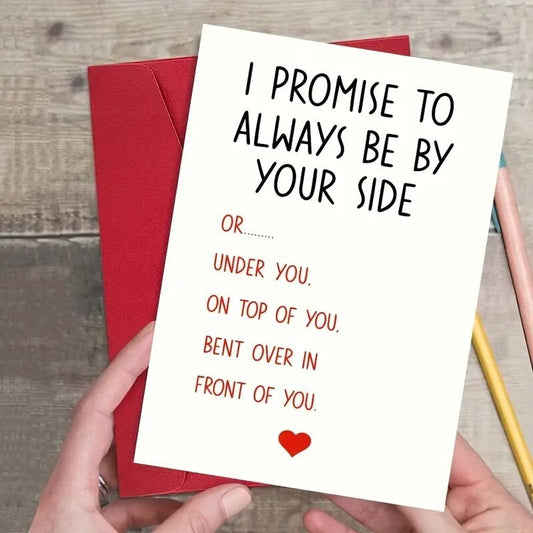 I PROMISE TO
ALWAYS BE BY
YOUR SIDE
OR.........
UNDER YOU,
ON TOP OF YOU,
BENT OVER IN
FRONT OF YOU.